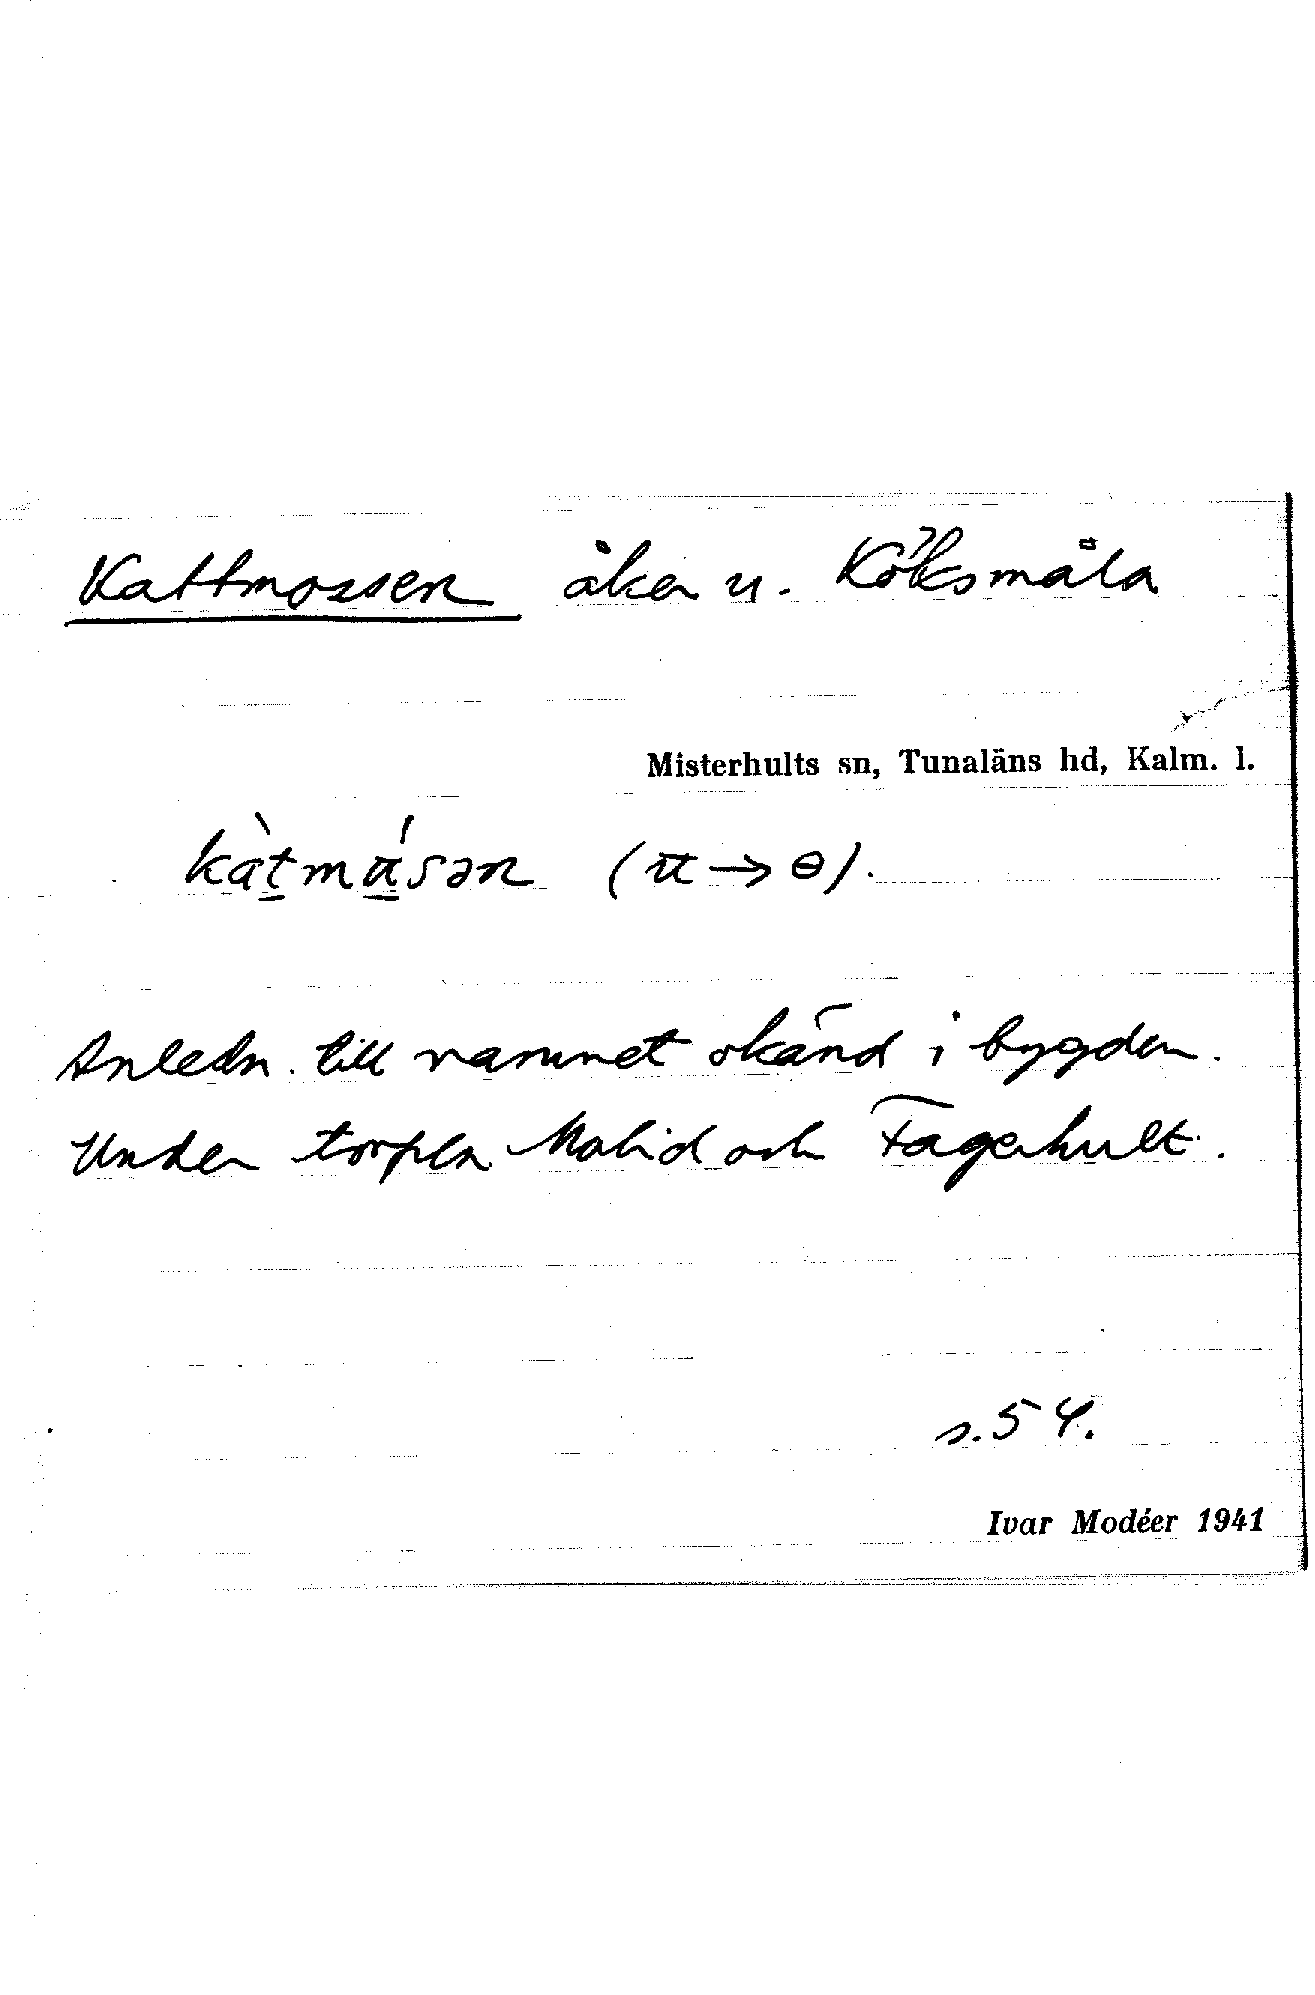 Kattmossen åker u. Köksmåla
Misterhults sn, Tunaläns hd, Kalm. l.
kàt̠mɑ̠́sən (ɑ → ɵ).
Anledn. till namnet okänd i bygden.
Under torpen Malid och Fagerhult.
s. 54.
Ivar Modéer 1941